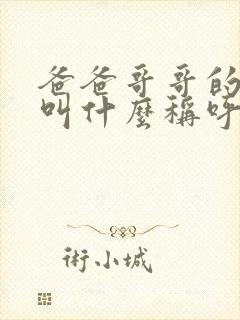 爸爸哥哥的
叫什麼稱呼
術小城